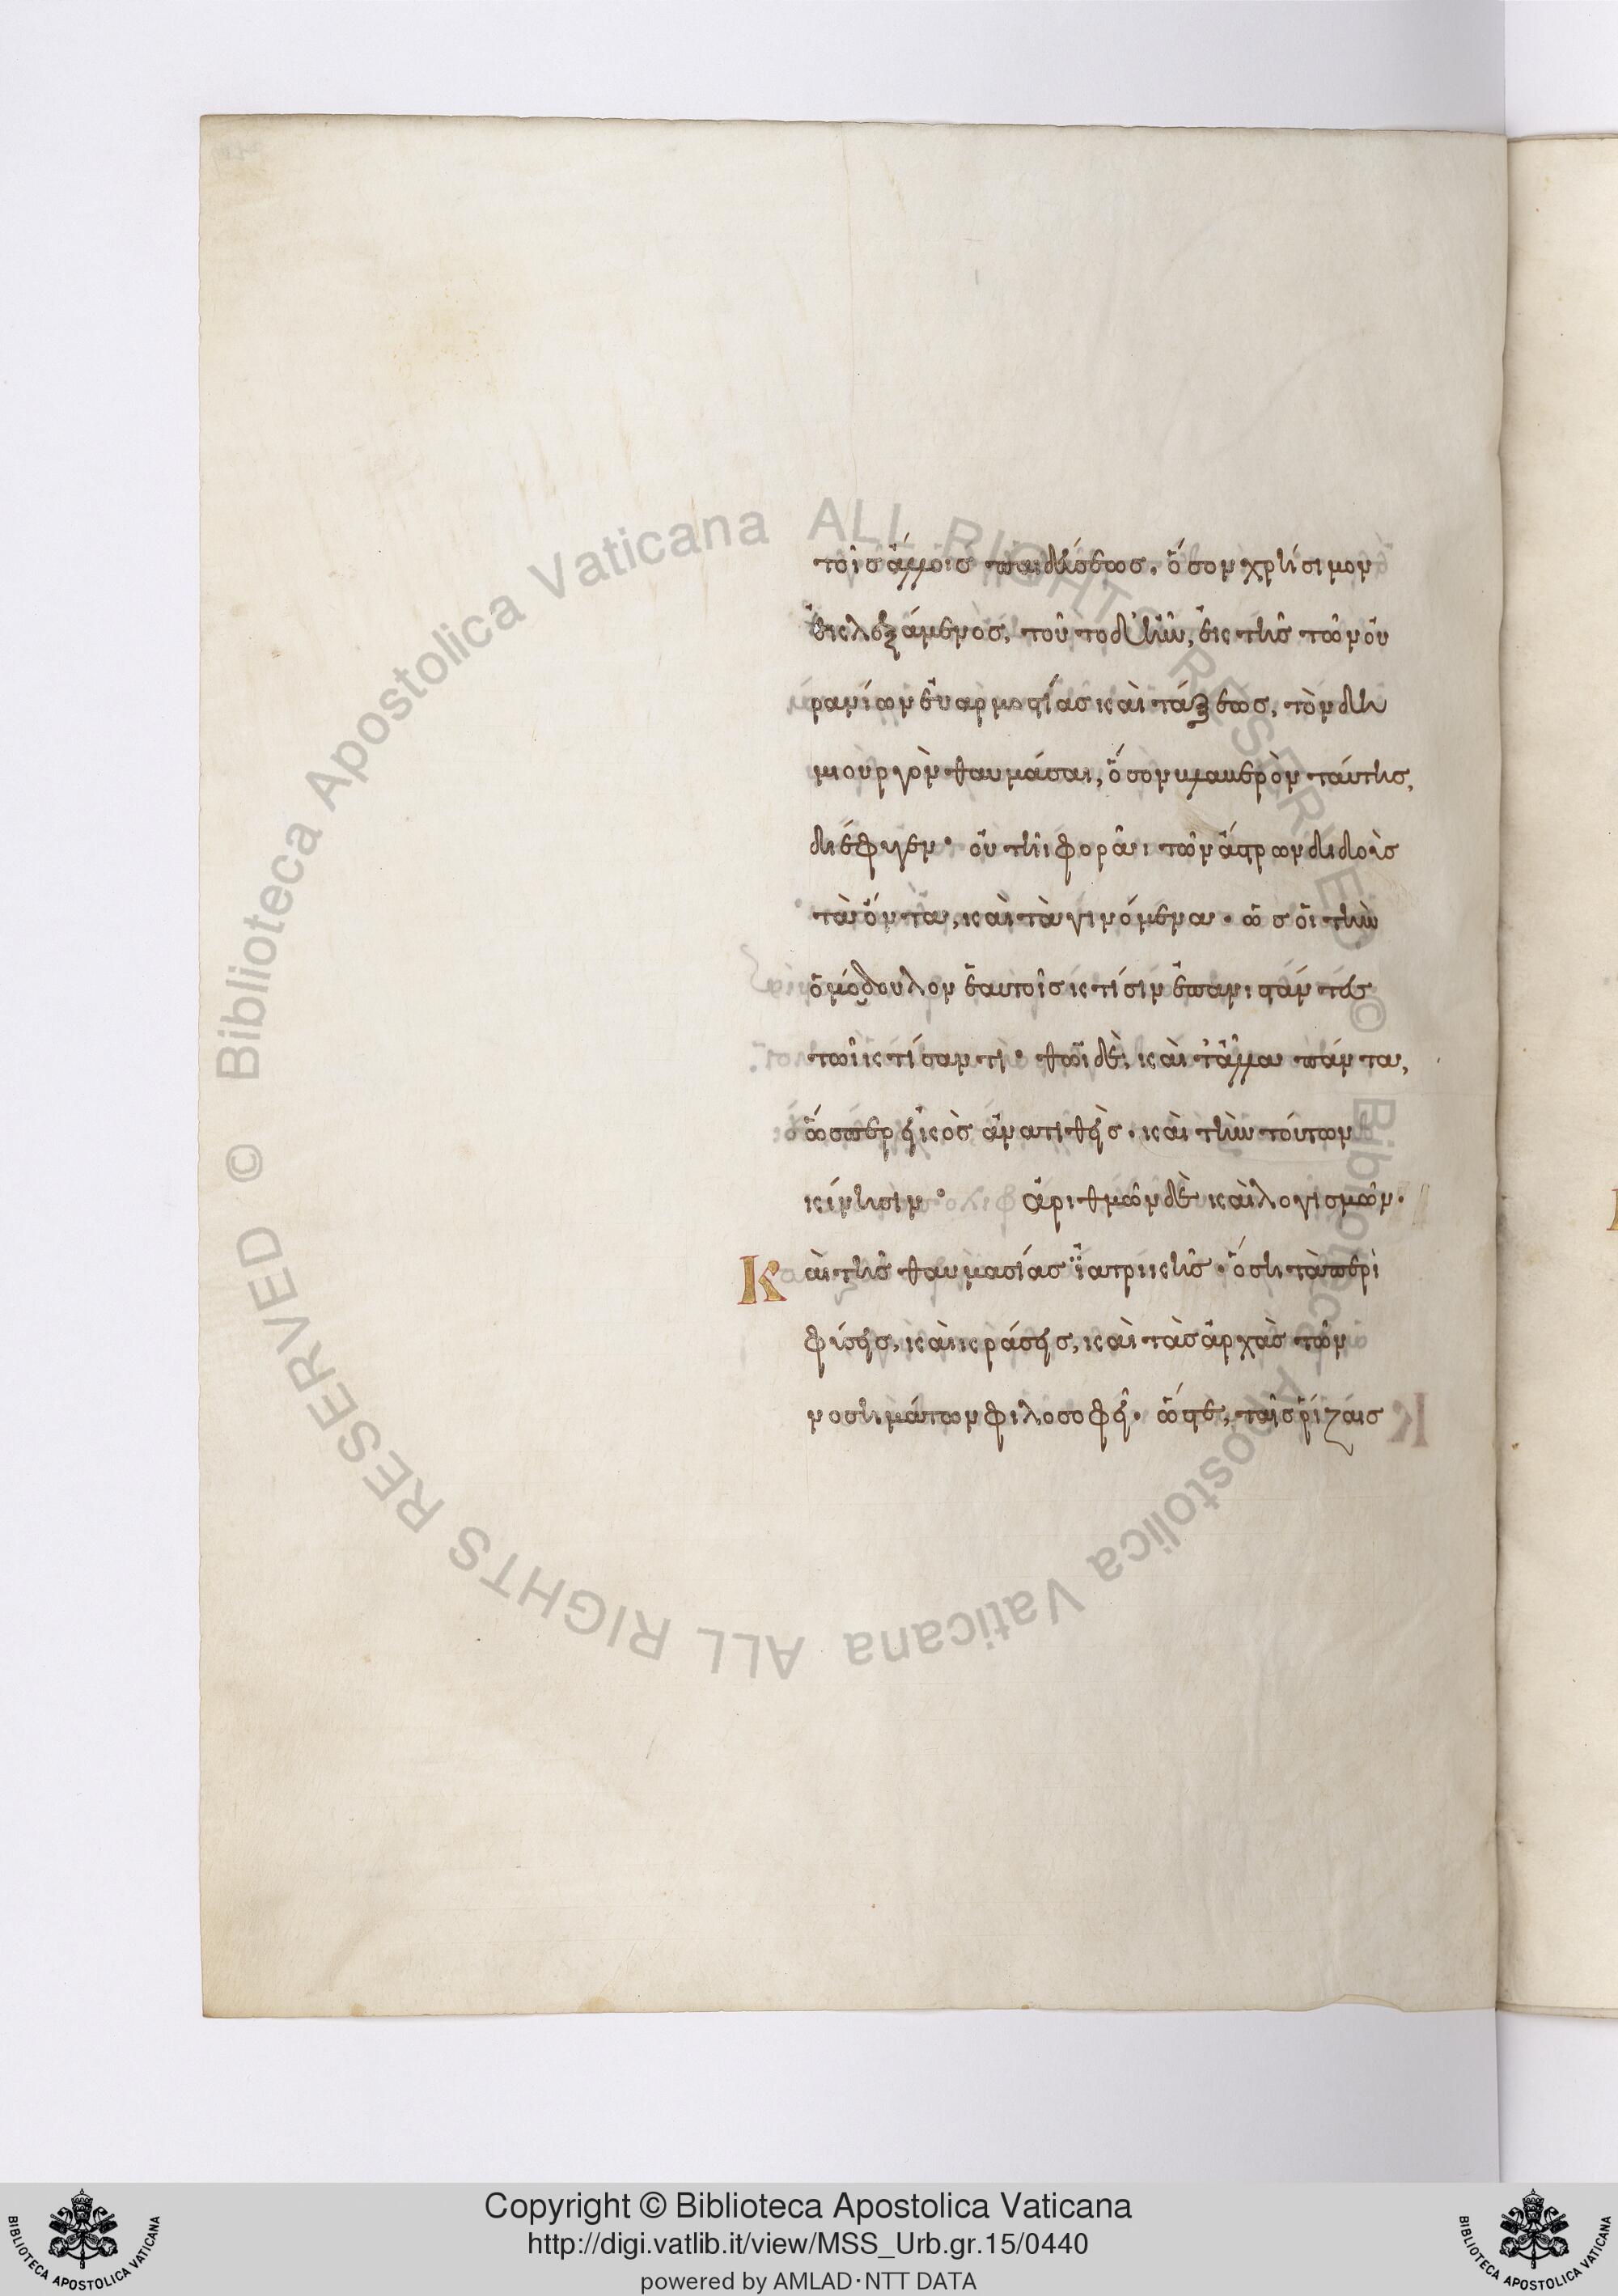 τοῖς ἄλλοις παιδεύσεως, ὅσον χρήσιμον
ἐκλεξάμενος, τοῦτο δ' ἦν, ἐκ τῆς τῶν οὐ
ρανίων εὐαρμοστίας καὶ τάξεως, τὸν δη
μιουργὸν θαυμάσαι, ὅσον βλαβερὸν ταύτης,
διέφυγεν· οὐ τῆι φορᾶι τῶν ἄστρων διδοὺς
τὰ ὄντα, καὶ τὰ γινόμενα· ὡς οἱ τὴν
ὁμόδουλον ἑαυτοῖς κτίσιν ἐπανιστάντες
τῶι κτίσαντι· θῶι δὲ, καὶ τἆλλα πάντα,
ὥσπερ εἰκὸς ἀνατιθεὶς· καὶ τὴν τούτων
κίνησιν· ἀριθμῶν δὲ καὶ λογισμῶν·
Καὶ τῆς θαυμασίας ϊατρικῆς· ὅση τὰ περὶ
φύσεις, καὶ κράσεις, καὶ τὰς ἀρχὰς τῶν
νοσημάτων φιλοσοφεῖ· ὥστε, ταῖς ῥίζαις
Copyright © Biblioteca Apostolica Vaticana
http://digi.vatlib.it/view/MSS_Urb.gr.15/0440
powered by AMLAD·NTT DATA
BIBLIOTECA APOSTOLICA VATICANA
BIBLIOTECA APOSTOLICA VATICANA
© Biblioteca Apostolica Vaticana ALL RIGHTS RESERVED
© Biblioteca Apostolica Vaticana ALL RIGHTS RESERVED